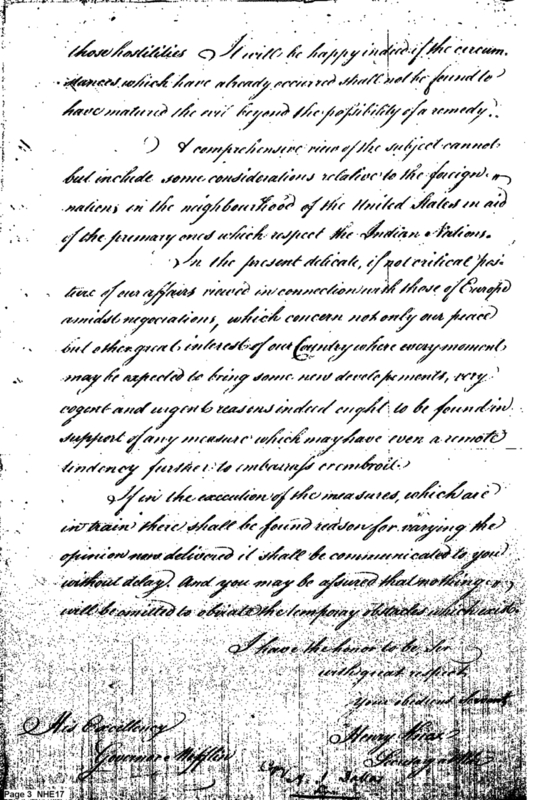 those hostilities It will be happy indeed if the circum-
stances which have already occurred shall not be found to
have matured the evil beyond the possibility of a remedy.
A comprehensive view of the subject cannot
but include some considerations relative to the foreign
nations in the neighbourhood of the United States in aid
of the primary ones which respect the Indian Nations.
In the present delicate, if not critical pos-
ture of our affairs viewed in connection with those of Europe
amidst negociations, which concern not only our peace
but other great interest of our Country where every moment
may be expected to bring some new developements, very
cogent and urgent reasons indeed ought to be found in
support of any measure which may have even a remote
tendency further to embarrass or embroil.
If in the execution of the measures, which are
in train there shall be found reason for varying the
opinion now delivered it shall be communicated to you
without delay. And you may be assured that nothing
will be omitted to obviate the temporay obstacles which exist.
I have the honor to be, Sir
with great respect
Your obedient Servant
Henry Knox
Secretary of War
His Excellency
Governor Mifflin
Copy A. J. Dallas
Page 3 NHE17